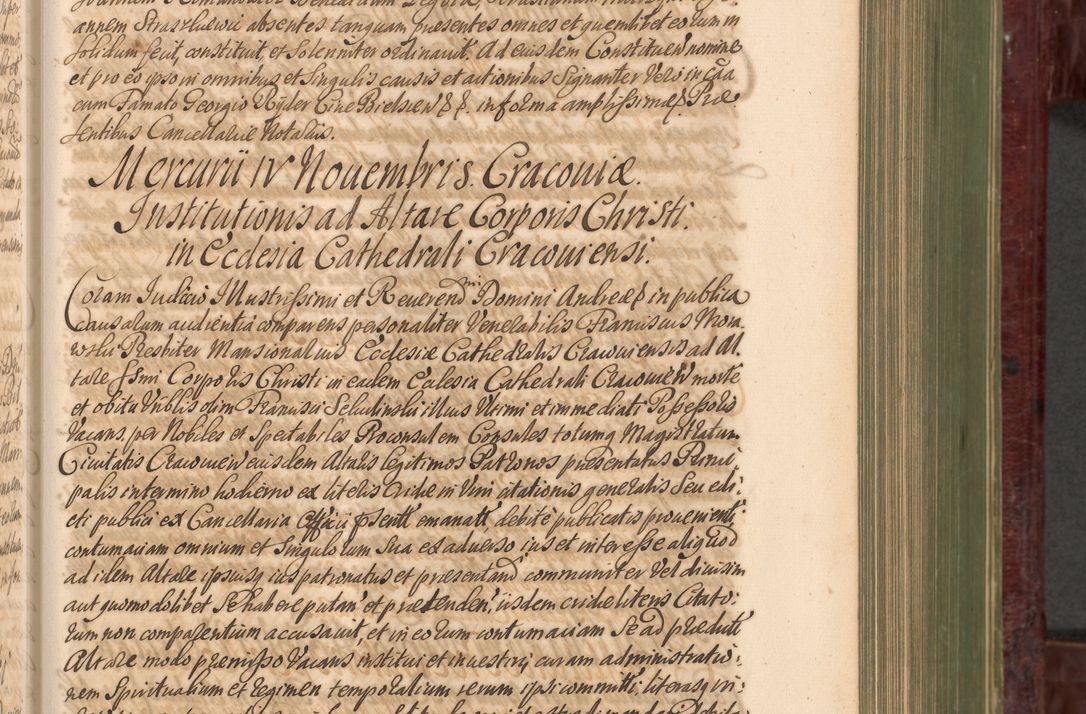 annem Straszkiewic absentes tanquam præsentes omnes et quemlibet eorum in
solidum fecit, constituit, et solenniter ordinavit. Ad eiusdem Constituen nomine
et pro eo ipso in omnibus et Singulis causis et actionibus Signanter Vero in cãa
cum Famato Georgio Ryder Cive Bielscen & & in forma amplissima & Præ
sentibus Cancellariæ Notariis.
Mercurii IV Novembris. Cracoviæ.
Institutionis ad Altare Corporis Christi
in Ecclesia Cathedrali Cracoviensi.
Coram Iudicio Illustrissimi et Reverendmi Domini Andreæ & in publica
causarum audientia comparens personaliter Venerabilis Franciscus Mora
wski Presbiter Mansionarius Ecclesiæ Cathedralis Cracoviensis ad Al
tare Ssmi Corporis Christi in eadem Ecclesia Cathedrali Cracovien morte
et obitu Vnblis olim Francisci Sekulinski illius Ultimi et immediati Possessoris
Vacans, per Nobiles et Spectabiles Proconsulem Consules totumq Magistratum
Civitatis Cracovien eiusdem Altaris legitimos Patronos præsentatus Princi
palis in termino hodierno ex literis Cridæ in Vim citationis generalis Seu edi:
cti publici ex Cancellaria Officii psentt emanatt, debite publicatis provenienti,
contumaciam omnium et Singulorum Sua ex adverso ius et interesse aliquod
ad idem Altare ipsiusq iuspatronatus et præsentand communiter Vel divisim
aut quomodolibet Se habere putan et prætenden, iisdem cridæ literis Citato:
rum non comparentium accusavit, et in eorum contumaciam Se ad præductt
Altare modo præmisso Vacans institui et investiri curam administratio:
nem Spiritualium et regimen temporalium rerum ipsi committi, literasq in: